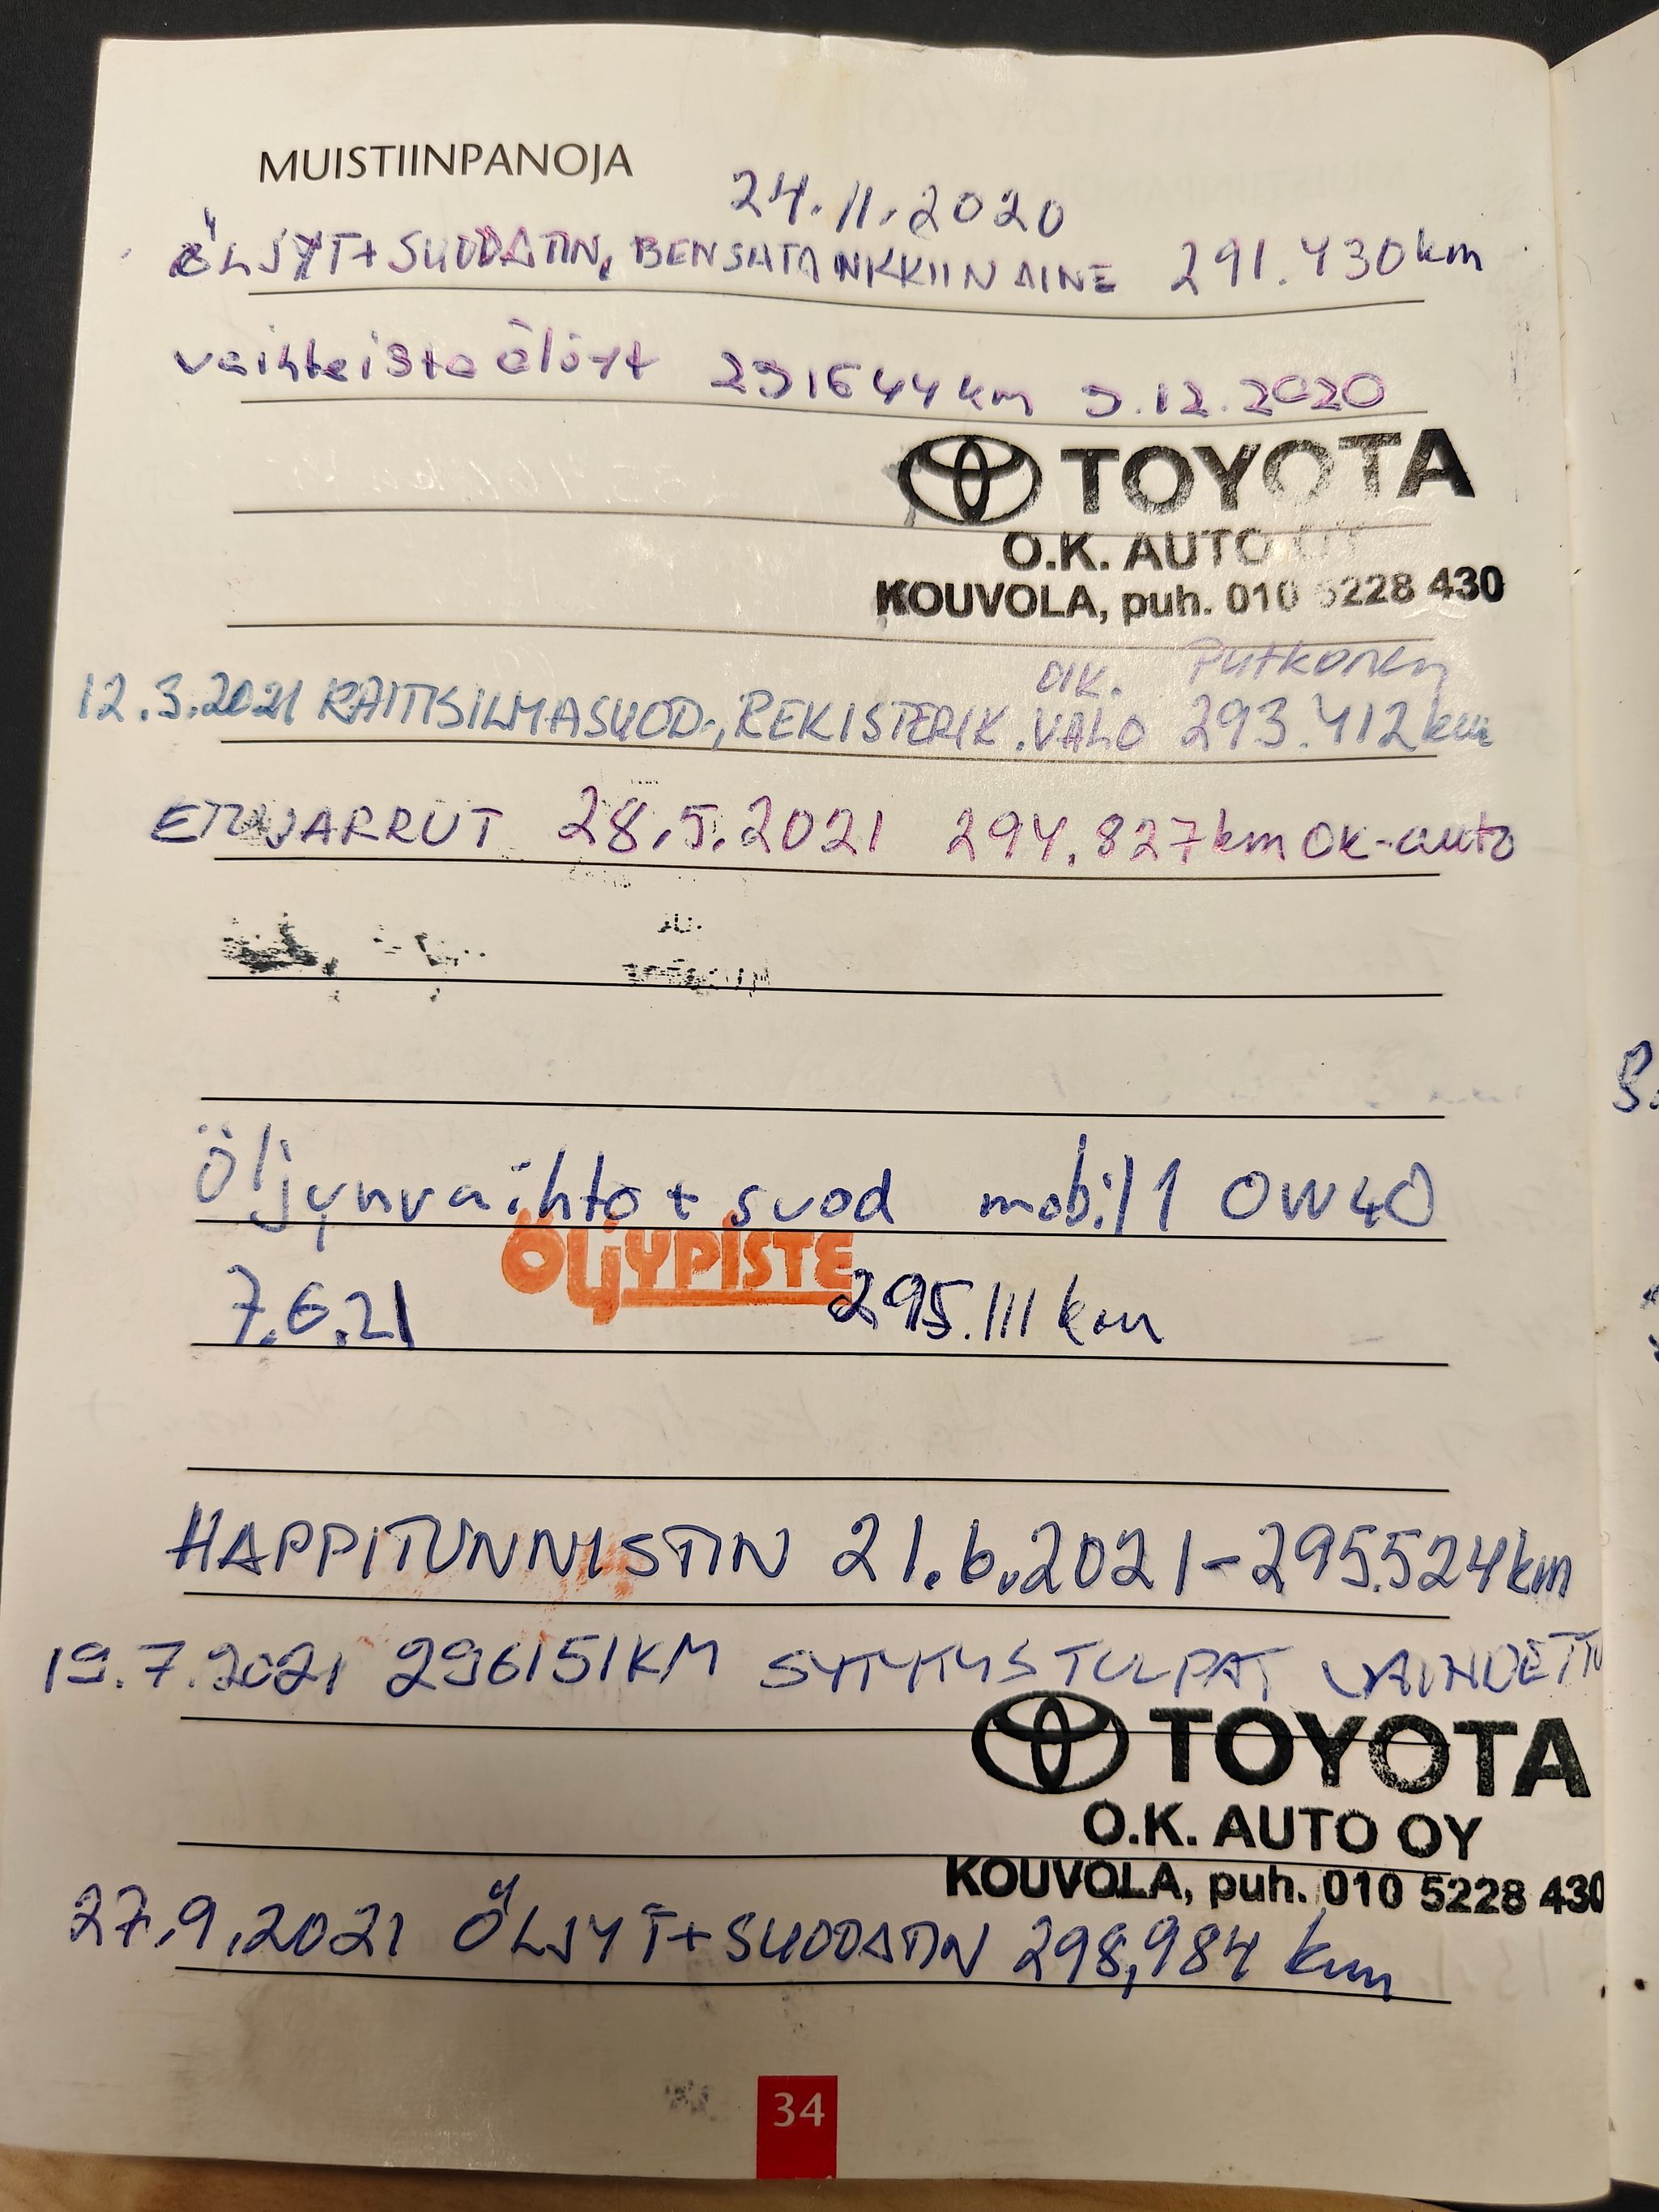 MUISTIINPANOJA
24.11.2020
ÖLJYT+SUODATIN, BENSATANKKIIN AINE 291.430km
vaihteisto ölöyt 291644km 9.12.2020
TOYOTA
O.K. AUTO OY
KOUVOLA, puh. 010 5228 430
OIK. Putkonen
12.3.2021 RAITISILMASUOD., REKISTERIK.VALO 293.412km
ETUJARRUT 28.5.2021 294.827km OK-auto
Öljynvaihto + suod mobil 1 0W40
ÖLJYPISTE
7.6.21 295.111 km
HAPPITUNNISTIN 21.6.2021-295.524km
19.7.2021 296151KM SYTYTYSTULPAT VAIHDETTU
TOYOTA
O.K. AUTO OY
KOUVOLA, puh. 010 5228 430
27.9.2021 ÖLJYT+SUODATIN 298,984 km
34